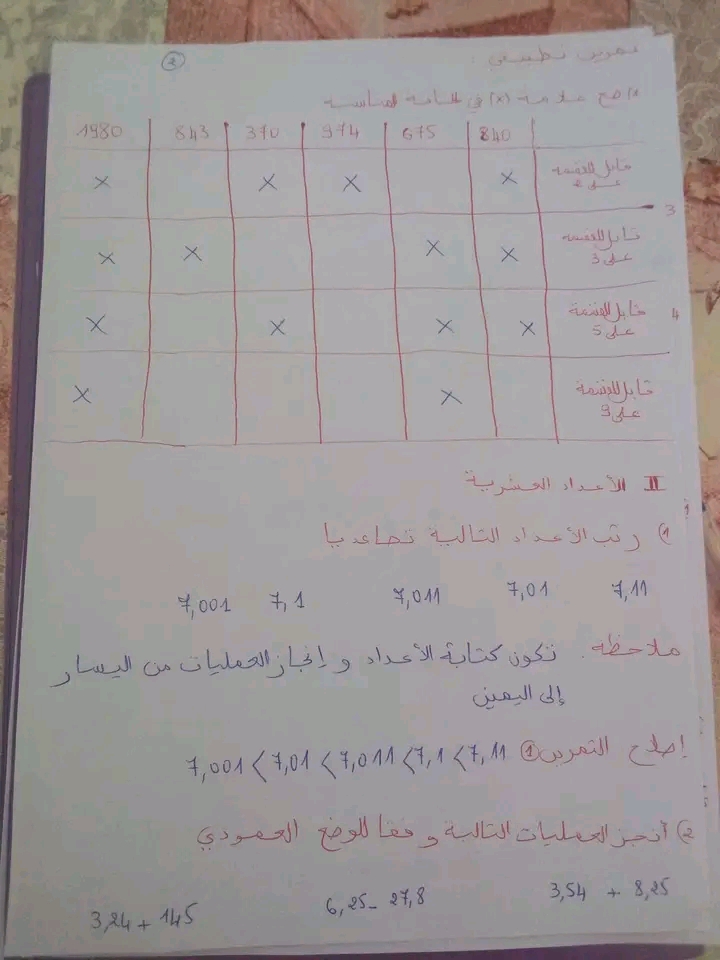 2
تمرين تطبيقي:
1) ضع علامة (x) في الخانة المناسبة
1980 843 370 974 675 840
قابل للقسمة على 2 x x x x
3
قابل للقسمة على 3 x x x x
قابل للقسمة على 5 x x x x
4
قابل للقسمة على 9 x x
II الأعداد العشرية
1) رتب الأعداد التالية تصاعديا
7,001 7,1 7,011 7,01 7,11
ملاحظة. تكون كتابة الأعداد و إنجاز العمليات من اليسار
إلى اليمين
إصلاح التمرين 1 7,001 < 7,01 < 7,011 < 7,1 < 7,11
2) أنجز العمليات التالية وفقا للوضع العمودي
3,24 + 145 6,25 - 27,8 3,54 + 8,25